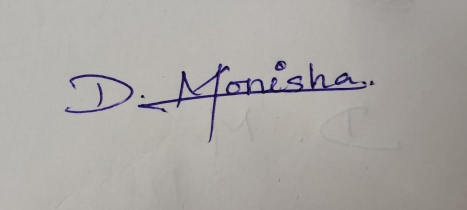 D. Monisha.